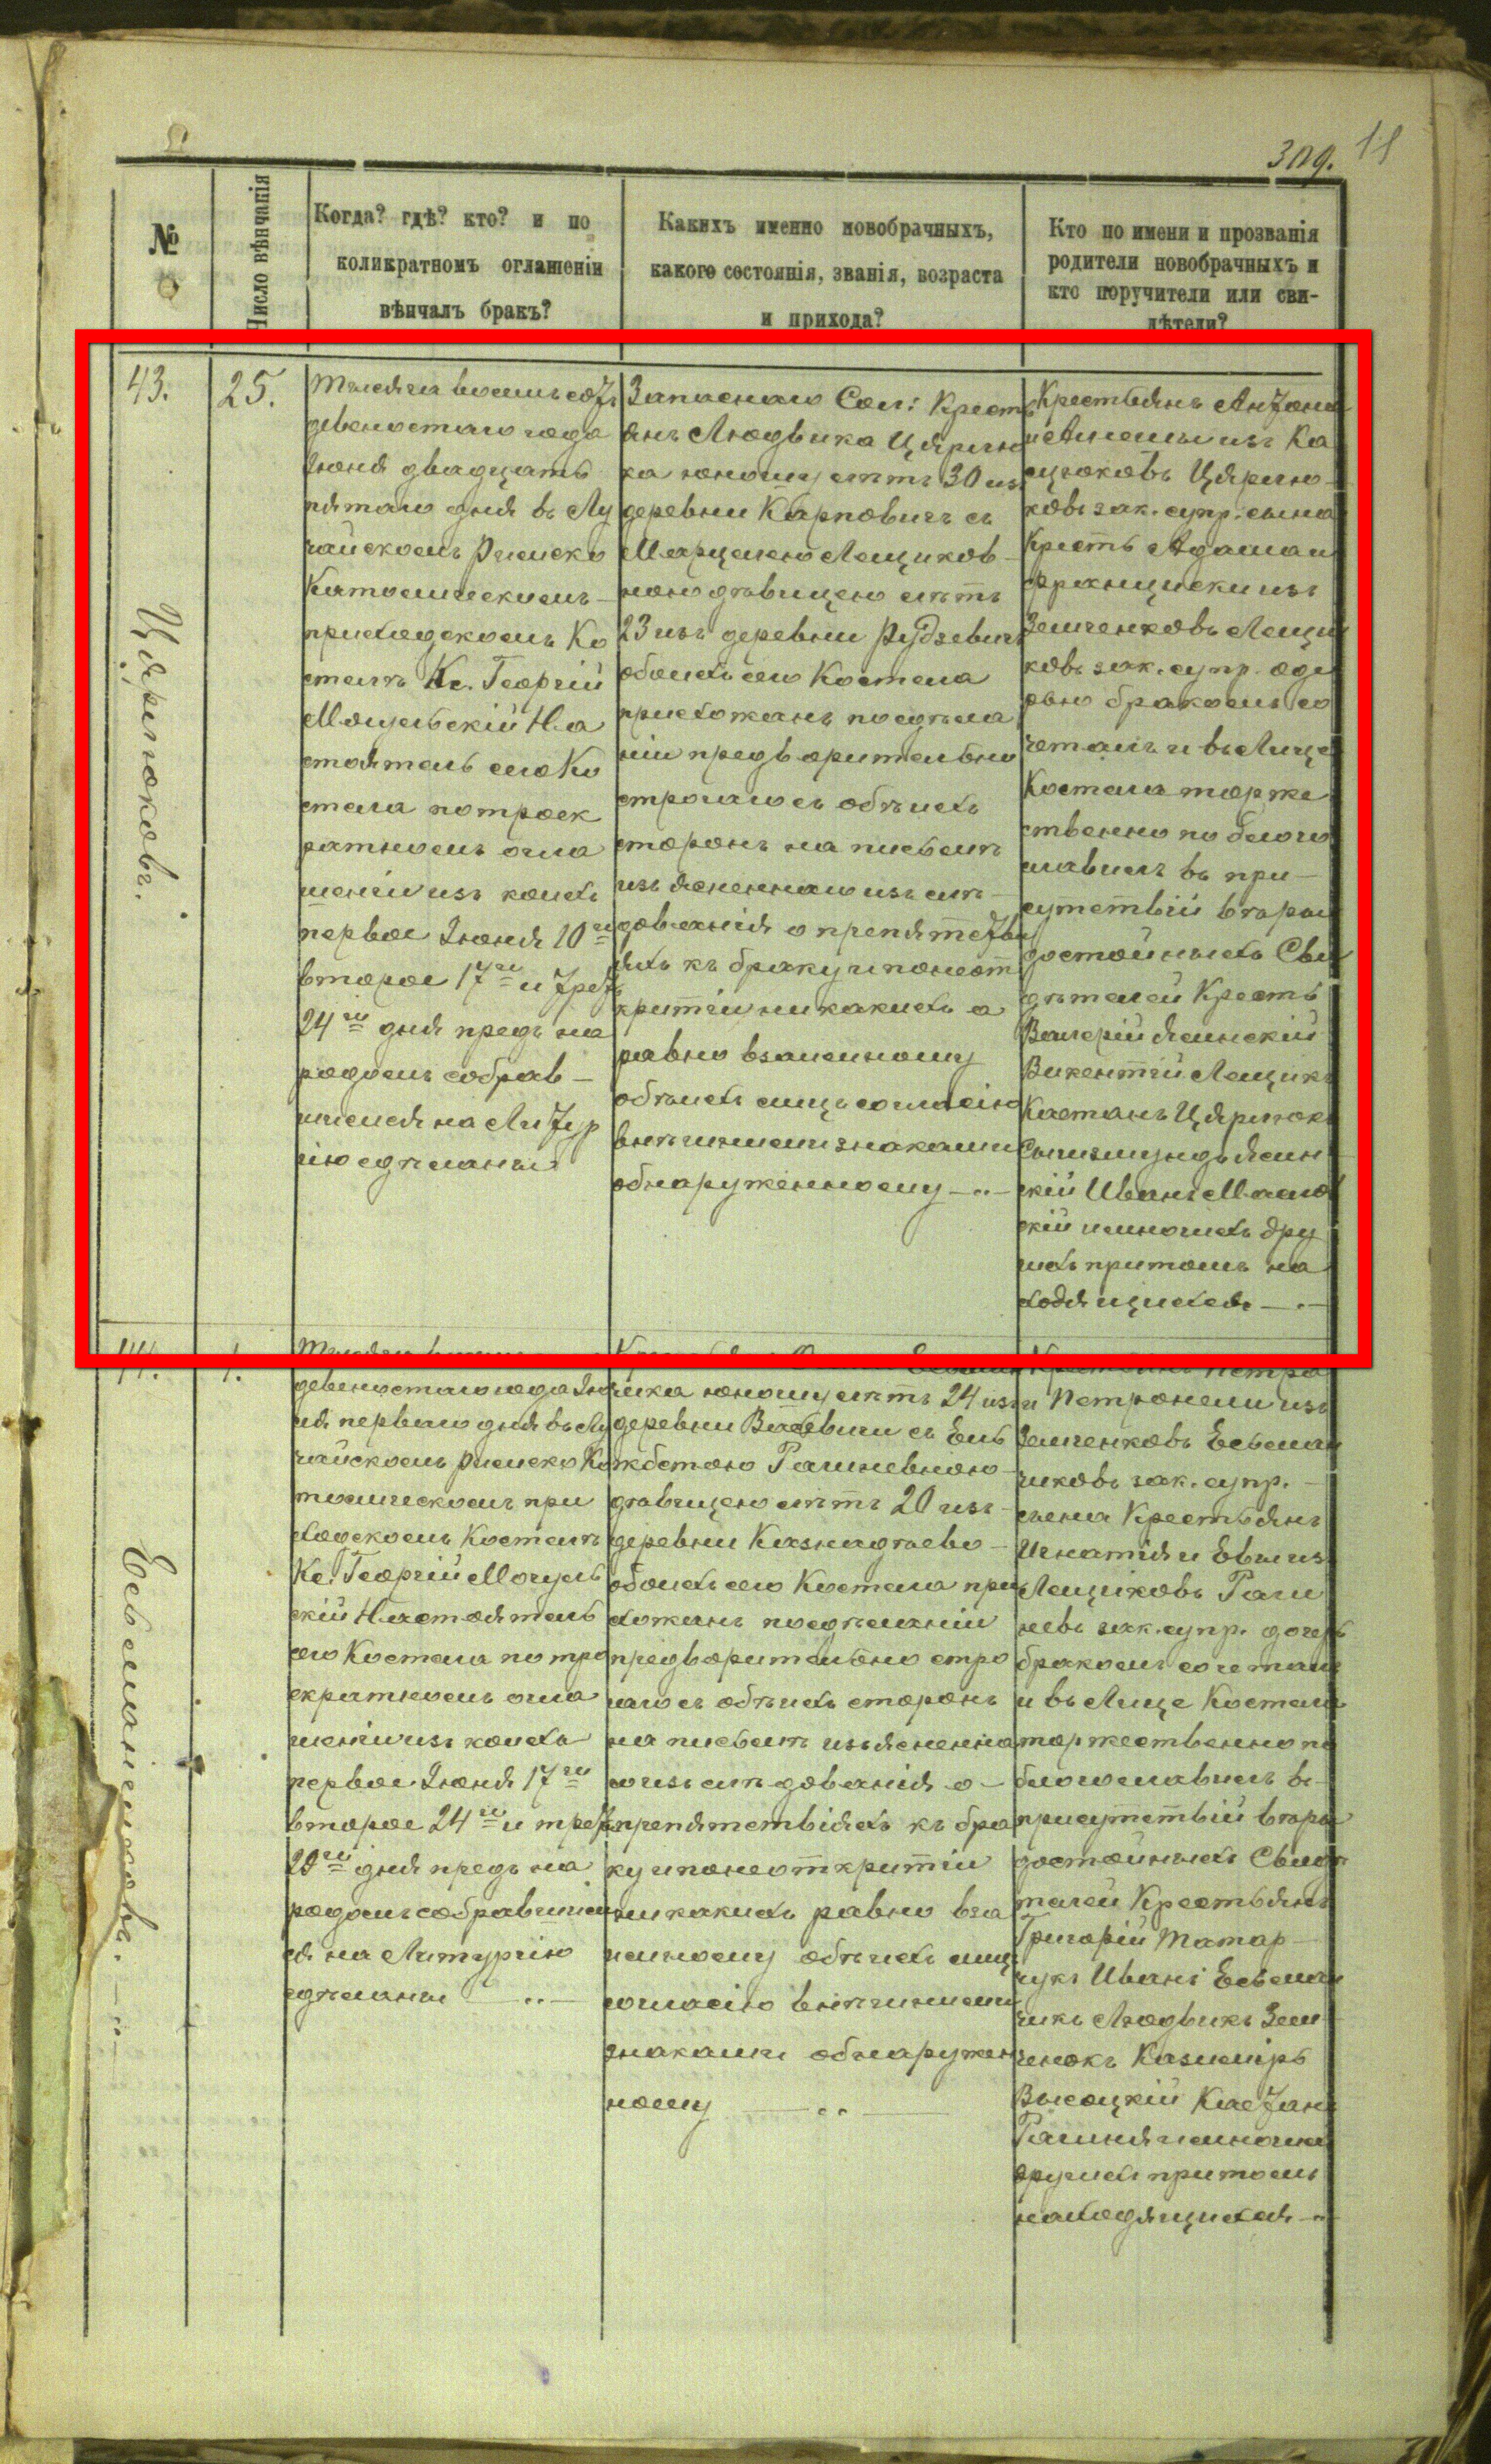 309.
11
№
Число вѣнчанія
Когда? гдѣ? кто? и по
коликратномъ оглашеніи
вѣнчалъ бракъ?
Какихъ именно новобрачныхъ,
какого состоянія, званія, возраста
и прихода?
Кто по имени и прозванія
родители новобрачныхъ и
кто поручители или сви-
дѣтели?
43.
Цярпюковъ.
25.
Тысяча восемьсотъ
девяностаго года
Іюня двадцать
пятаго дня въ Лу
чайскомъ Римско
Католическомъ
приходскомъ Ко
стелѣ Кс. Георгій
Могульскій На
стоятель сего Ко
стела по троек
ратномъ огла
шеніи изъ коихъ
первое Іюня 10го
второе 17го и трет
24го дня предъ на
родомъ собрав—
шимся на Литур
гію сдѣланы
Запаснаго Сол: Кресть
янъ Людвика Цярпю
ка юношу лѣтъ 30 изъ
деревни Карповичъ съ
Марцелею Лещиков—
ною дѣвицею лѣтъ
23 изъ деревни Рудзевичъ
обоихъ сего Костела
прихожанъ по сдѣла
ніи предварительно
строгаго съ обѣихъ
сторонъ на письмѣ
изъясненнаго изслѣ—
дованія о препятств
іяхъ къ браку и по неот
критіи никакихъ а
равно взаимному
обѣихъ лицъ согласію
внѣшними знаками
обнаруженному —..—
Крестьянъ Антона
и Амеліи изъ Ка
цюковъ Цярпю—
ковъ зак. супр. сына
Кресть Адама и
Францишки изъ
Земченковъ Лещи
ковъ зак. супр.
браком со
четалъ и въ Лице
Костела торже
ственно по благо
славилъ въ при—
сутствіи вѣры
достойныхъ Сви
дѣтелей Кресть
Валерій Ясинскій
Викентій Лещикъ
Каетанъ Цярпюкъ
Сигизмундъ Ясин
скій Иванъ
скій и многихъ дру
гихъ притомъ на
ходящихся —.—
44.
Есьманчиковъ. —..—
1.
девяностаго года Ію
ля перваго дня въ Лу
чайскомъ Римско Ка
толическомъ при
ходскомъ Костелѣ
Кс. Георгій Могуль
скій Настоятель
сего Костела по тро
екратномъ огла
шеніи изъ коихъ
первое Іюня 17го
второе 24го и трет
29го дня предъ на
родомъ собравшим
ся на Литургію
сдѣланы —..—
чика юношу лѣтъ 24 изъ
деревни съ Ель
жбетою Рагиневною
дѣвицею лѣтъ 20 изъ
деревни Казнадѣево—
обоихъ сего Костела при
хожанъ по сдѣланіи
предварительно стро
гаго съ обѣихъ сторонъ
на письмѣ изъясненна
го изслѣдованія о—
препятствіяхъ къ бра
ку и по неоткритіи
никакихъ равно вза
имному обѣихъ лицъ
согласію внѣшними
знаками обнаружен
ному —..—
и Петронели изъ
Земченковъ Есьман
чиковъ зак. супр. —
сына Крестьянъ
Игнатія и Евы изъ
Лещиковъ Раги
невъ зак. супр. дочерь
бракомъ сочеталъ
и въ Лице Костела
торжественно по
благославилъ въ—
присутствіи вѣры
достойныхъ Свидѣ
телей Крестьянъ
Григорій Татар—
чукъ Иванъ Есьман
чикъ Людвикъ Зем
ченокъ Казиміръ
Высоцкій Каетанъ
Рагиня и многихъ
другихъ притомъ
находящихся —..